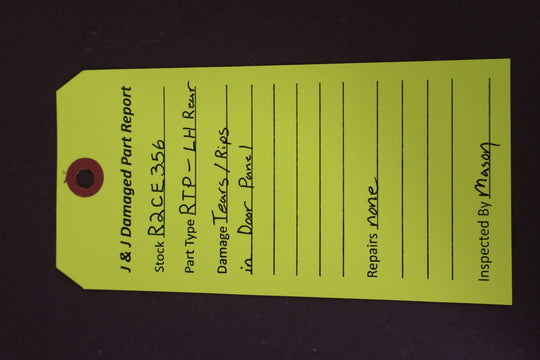 J & J Damaged Part Report
Stock R2CE356
Part Type RTP - LH Rear
Damage Tears/Rips
in Door Panel
Repairs none
Inspected By Mason